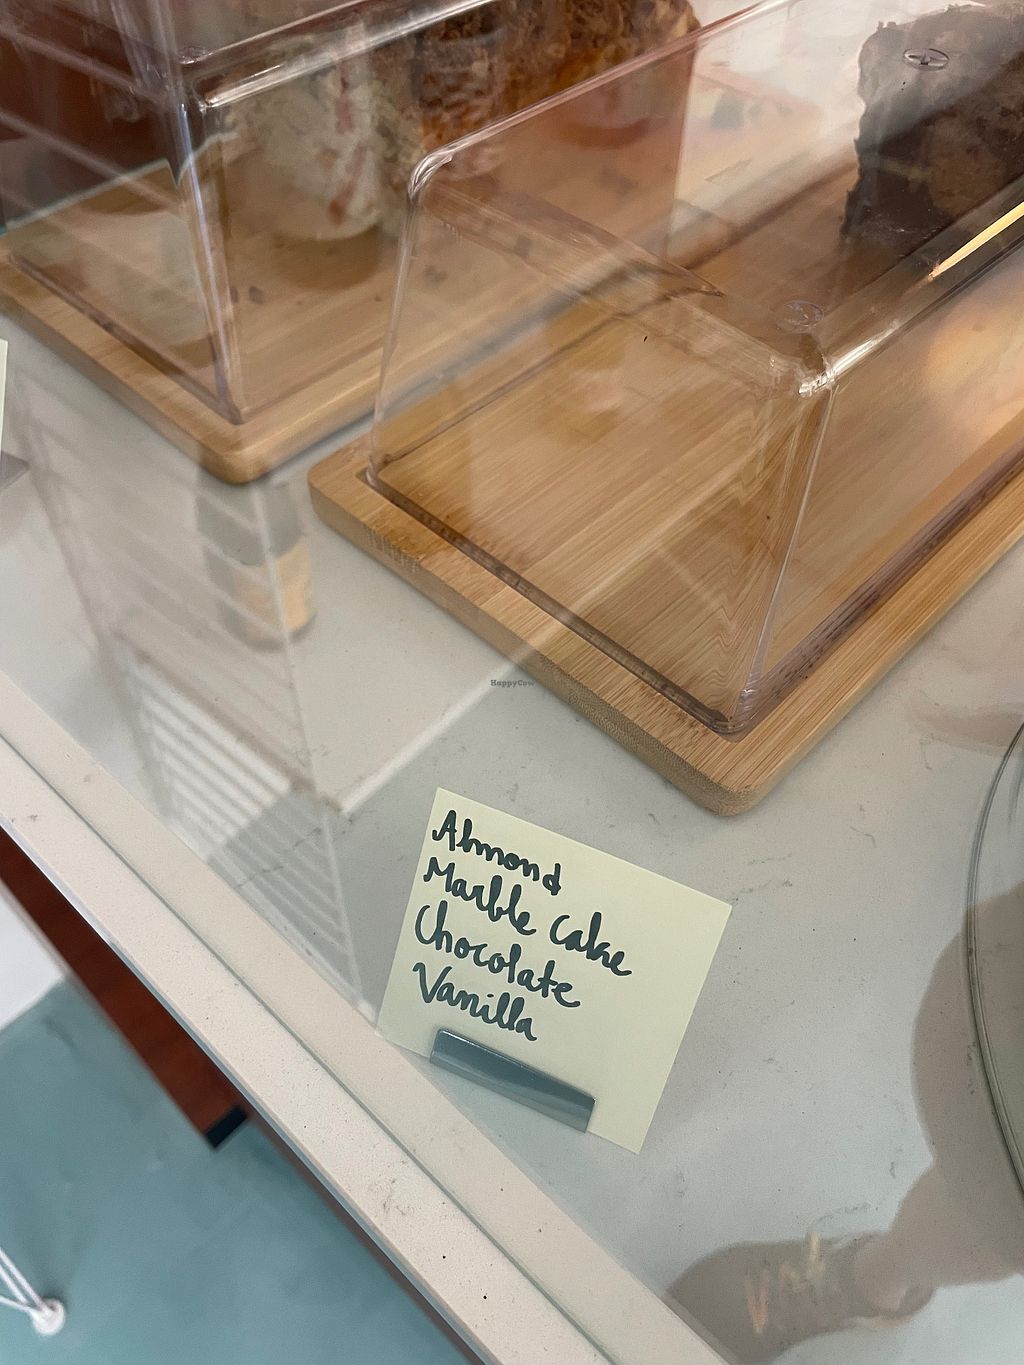 HappyCow
Almond
Marble Cake
Chocolate
Vanilla